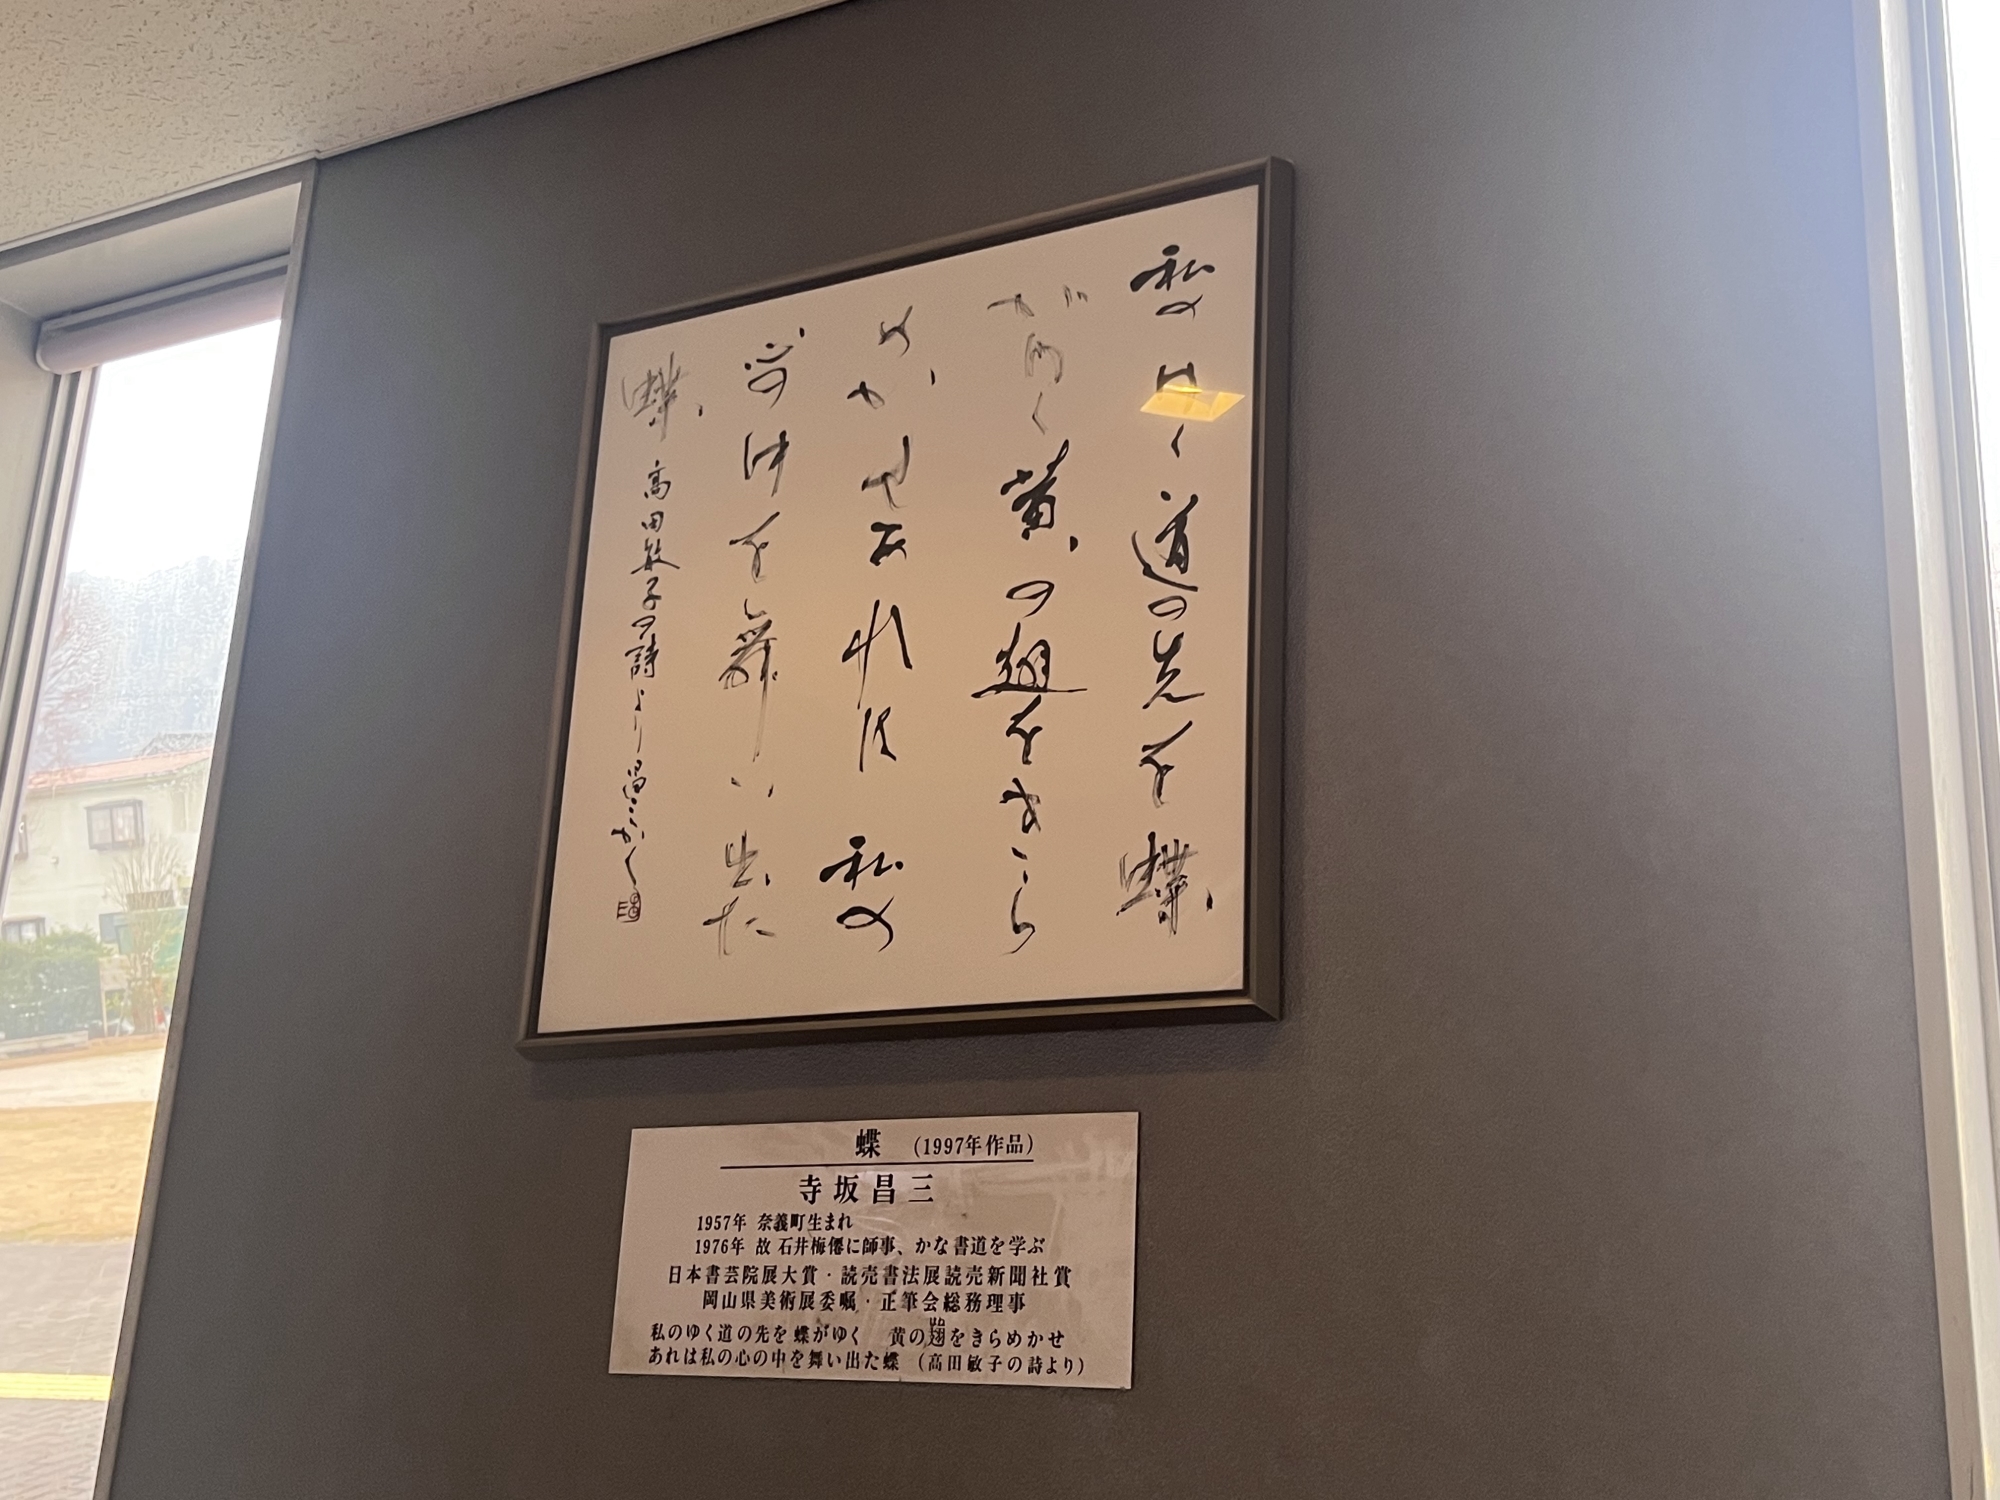 私のゆく道の先を蝶
がゆく黄の翅をきら
めかせあれは私の
心の中を舞い出た
蝶 高田敏子の詩より 昌三かく
蝶 (1997年作品)
寺坂昌三
1957年 奈義町生まれ
1976年 故 石井梅僊に師事、かな書道を学ぶ
日本書芸院展大賞・読売書法展読売新聞社賞
岡山県美術展委嘱・正筆会総務理事
私のゆく道の先を蝶がゆく 黄の翅をきらめかせ
あれは私の心の中を舞い出た蝶 (高田敏子の詩より)